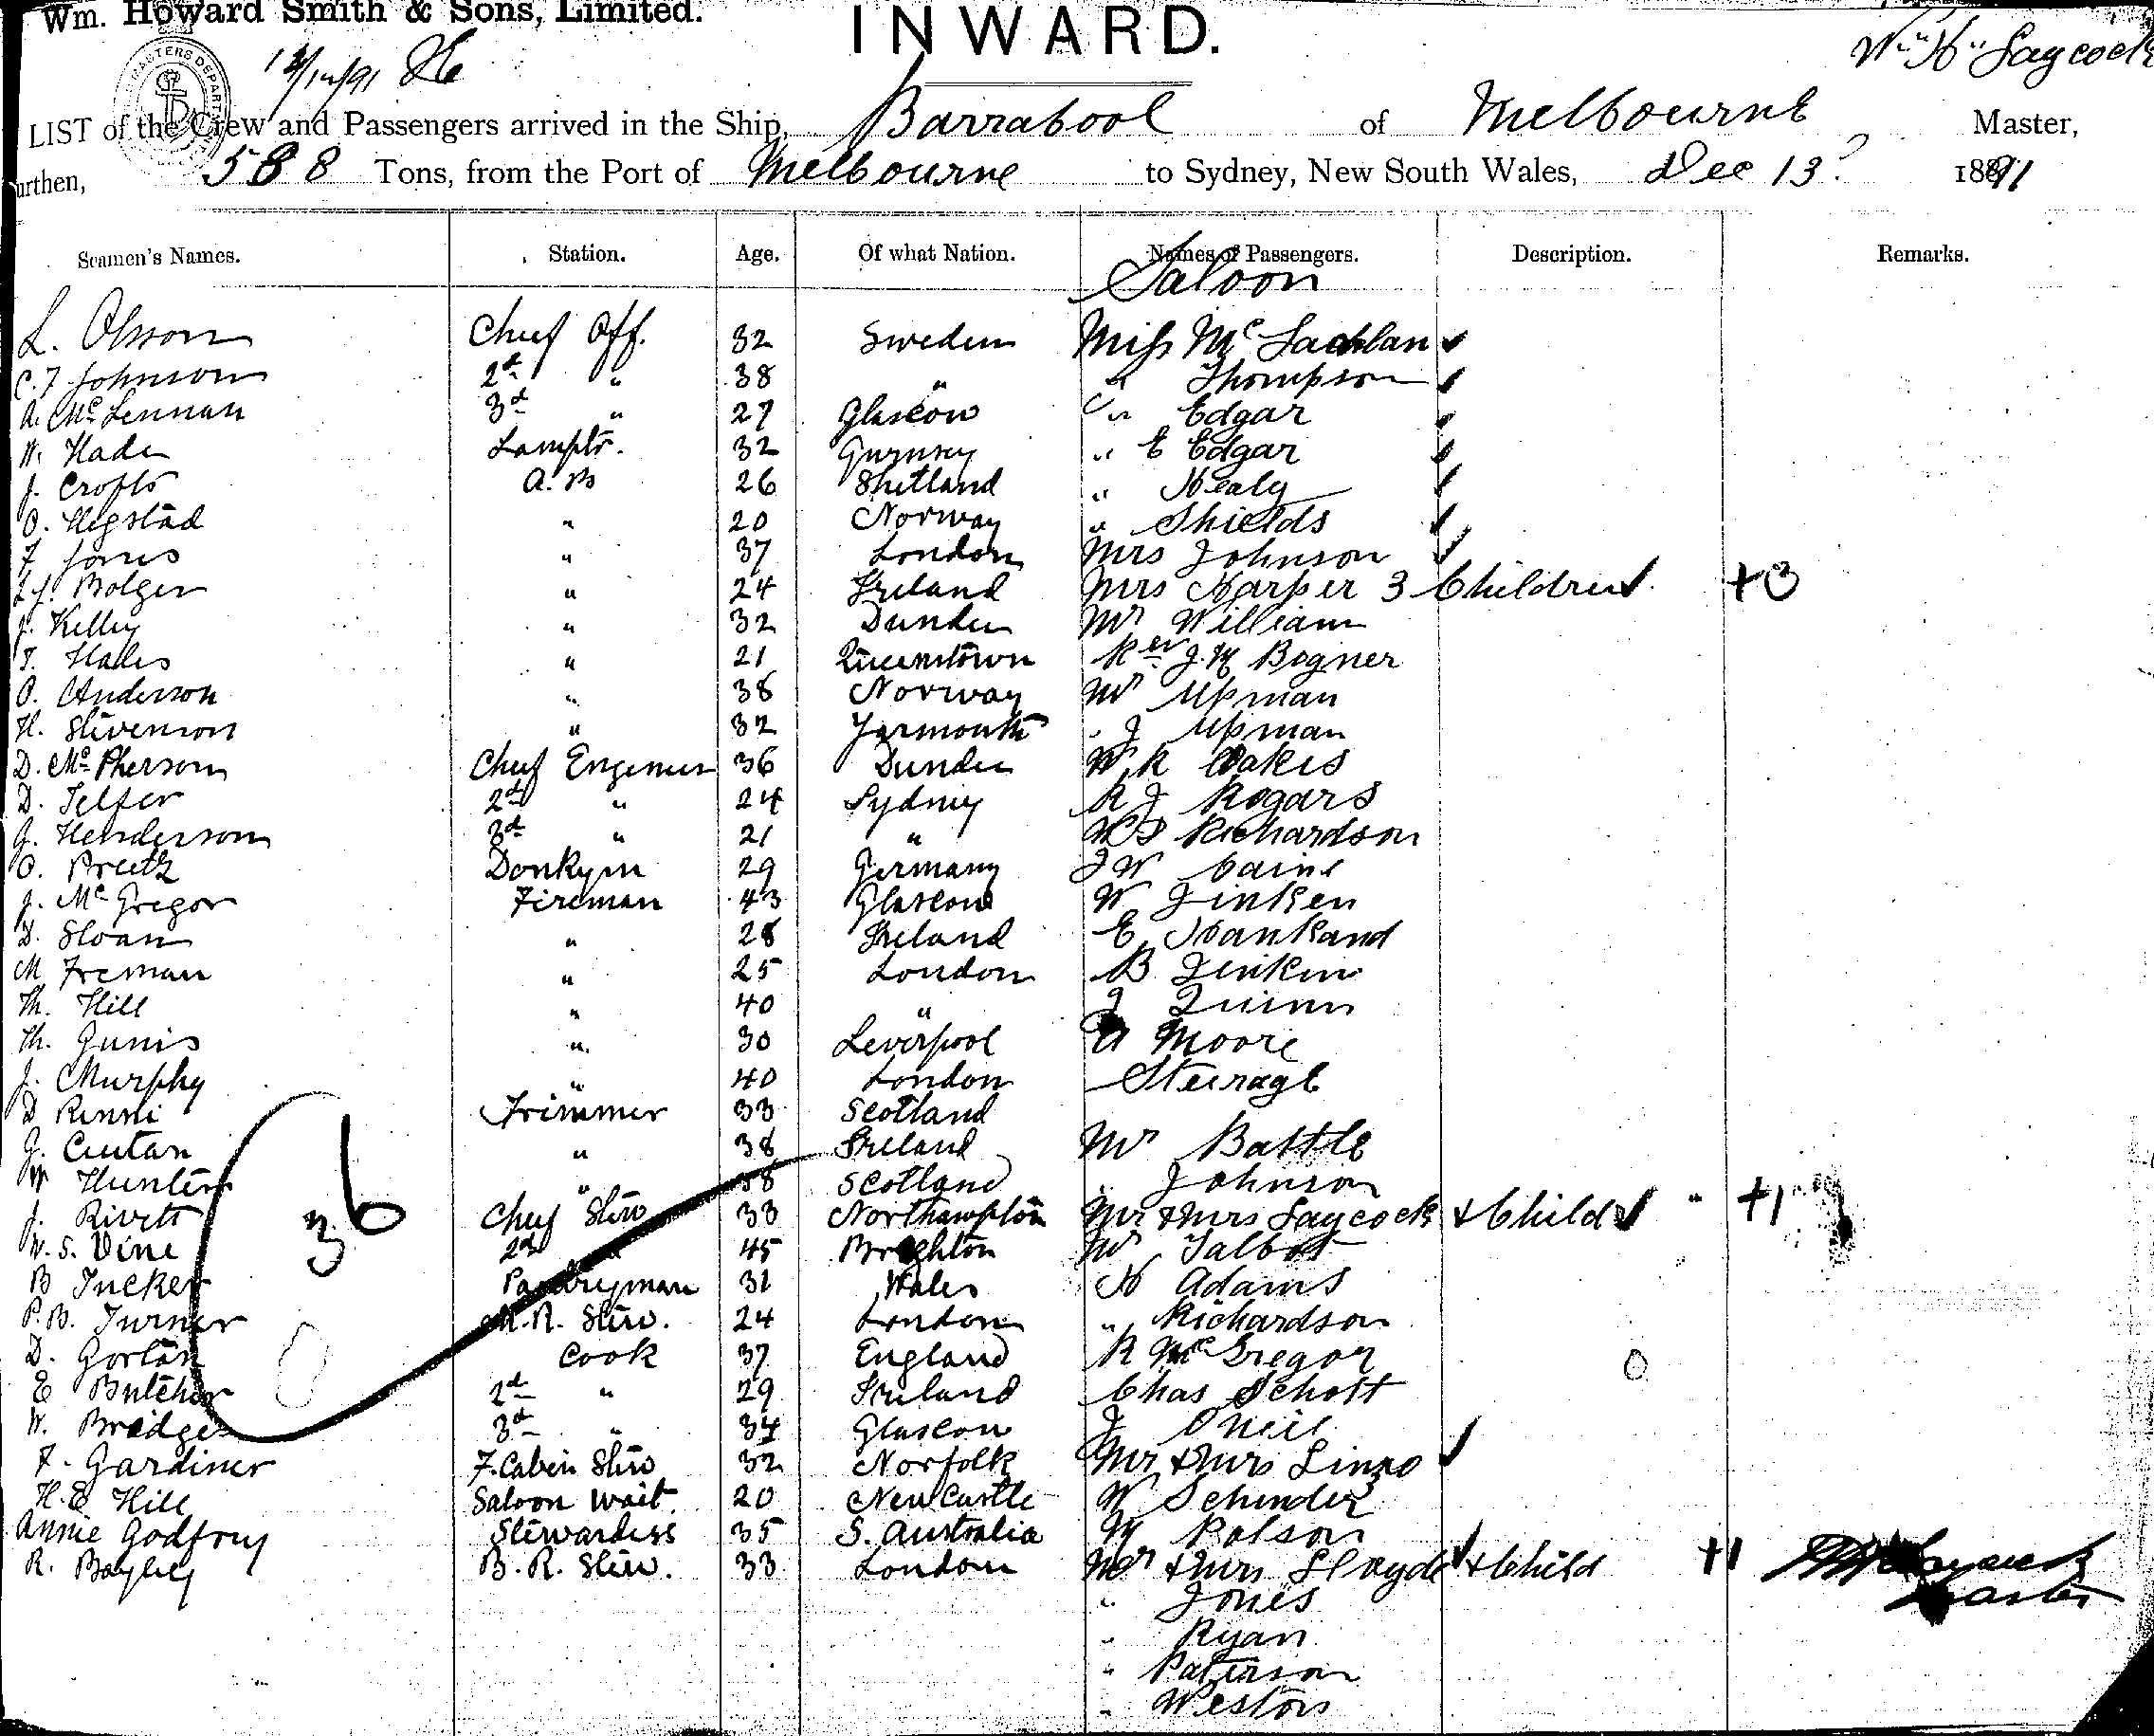 Wm. Howard Smith & Sons, Limited.
INWARD.
Wm. H. Laycock
MASTERS DEPART
12/12/91
LIST of the Crew and Passengers arrived in the Ship, Barrabool of Melbourne Master,
urthen, 588 Tons, from the Port of Melbourne to Sydney, New South Wales, Dec 13 1891
Seamen's Names. Station. Age. Of what Nation. Names of Passengers. Description. Remarks.
Saloon
L. Olsson Chief Off. 32 Sweden Miss McLachlan
C. J Johnson 2d " 38 " " Thompson
A. McLennan 3d " 27 Glascow " Edgar
W. Hade Lamptr. 32 Gurnsey " E Edgar
J. Crofts A. B 26 Shetland " Healy
O. Hegstad " 20 Norway " Shields
F Jones " 37 London Mrs Johnson
Bolger " 24 Ireland Mrs Harper 3 Children +3
J. Kelley " 32 Dundee Mr William
T. Hales " 21 Queenstown Rev J. H Bogner
O. Anderson " 38 Norway Mr Upman
H. Stevenson " 32 Yarmouth " J Upman
D. McPherson Chief Engineer 36 Dundee W. R Oakes
D. Telfer 2d " 24 Sydney R J Rogars
G. Henderson 3d " 21 " W S Richardson
O. Breetz Donkym 29 Germany J W Caine
J. McGregor Fireman 43 Glascow W Jinken
D. Sloan " 28 Ireland E Hankand
M Freman " 25 London B Jenkin
Th. Hill " 40 " J Quinn
Th. Gunis " 30 Leverpool A Moore
J. Murphy " 40 London Steerage
D Rennie Trimmer 33 Scotland
G. Cuutan " 38 Ireland Mr Battle
W Hunter " 38 Scotland " Johnson
J. Rivett Chief Stew 33 Northampton Mr & Mrs Laycock & Child " +1
W. S. Vine 2d " 45 Brighton Mr Talbot
B Tucker Pantryman 31 Wales H Adams
P. B. Turner M. R. Stew. 24 London " Richardson
D. Gorlan Cook 37 England R McGregor
E Butcher 2d " 29 Ireland Chas Schott
W. Bredge 3d " 34 Glascow J ONeil
F. Gardiner F. Cabin Stew 32 Norfolk Mr & Mrs Linzo
H. E Hill Saloon Wait. 20 New Castle W Schender
Annie Godfrey Stewardess 35 S. Australia M Polson
R. Bayley B. R. Stew. 33 London Mr & Mrs Lloyde & Child +1 Laycock
" Jones Master
" Ryan
" Paterson
" Weston
36